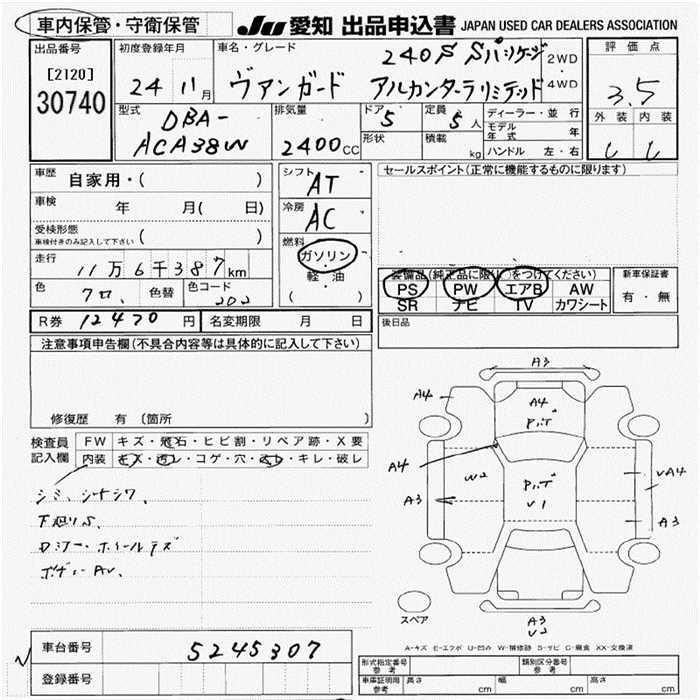 車内保管・守衛保管
JU 愛知 出品申込書 JAPAN USED CAR DEALERS ASSOCIATION
出品番号
[2120]
30740
初度登録年月
24 11月
車名・グレード
240S Sパッケージ
ヴァンガード アルカンターラリミテッド
2WD
・
4WD
評価点
3.5
外装 内装
型式
DBA-
ACA38W
排気量
2400cc
ドア
5
形状
定員
5人
積載
kg
ディーラー・並行
モデル年式 年
ハンドル 左・右
車歴 自家用・( )
車検 年 月( 日)
受検形態
車検付きのみ記入して下さい ( )
走行
11万6千387km
色 クロ、 色替 色コード 202
シフト
AT
冷房
AC
燃料
ガソリン
・
軽・油
( )
セールスポイント(正常に機能するものに限ります)
装備品(純正品に限り○をつけてください)
PS PW エアB AW
SR ナビ TV カワシート
新車保証書
有・無
R券 12470円 名変期限 月 日
後日品
注意事項申告欄(不具合内容等は具体的に記入して下さい)
修復歴 有 (箇所
検査員
記入欄
FW キズ・飛石・ヒビ割・リペア跡・X要
内装 キズ・汚レ・コゲ・穴・スレ・キレ・破レ
シミ、シートシワ、
下廻りS
ロッカー・ホイールキズ
ボディーAU、
A3
A4
A4
P.ィT
A4
W2
P.ィT
V1
A3
UA4
A3
スペア
A3
V2
A-キズ E-エクボ U-凹み W-補修跡 S-サビ C-腐食 XX-交換済
車台番号 5245307
登録番号
型式指定番号
参考
類別区分番号
参考
車庫証明用
参考
長さ cm 幅 cm 高さ cm